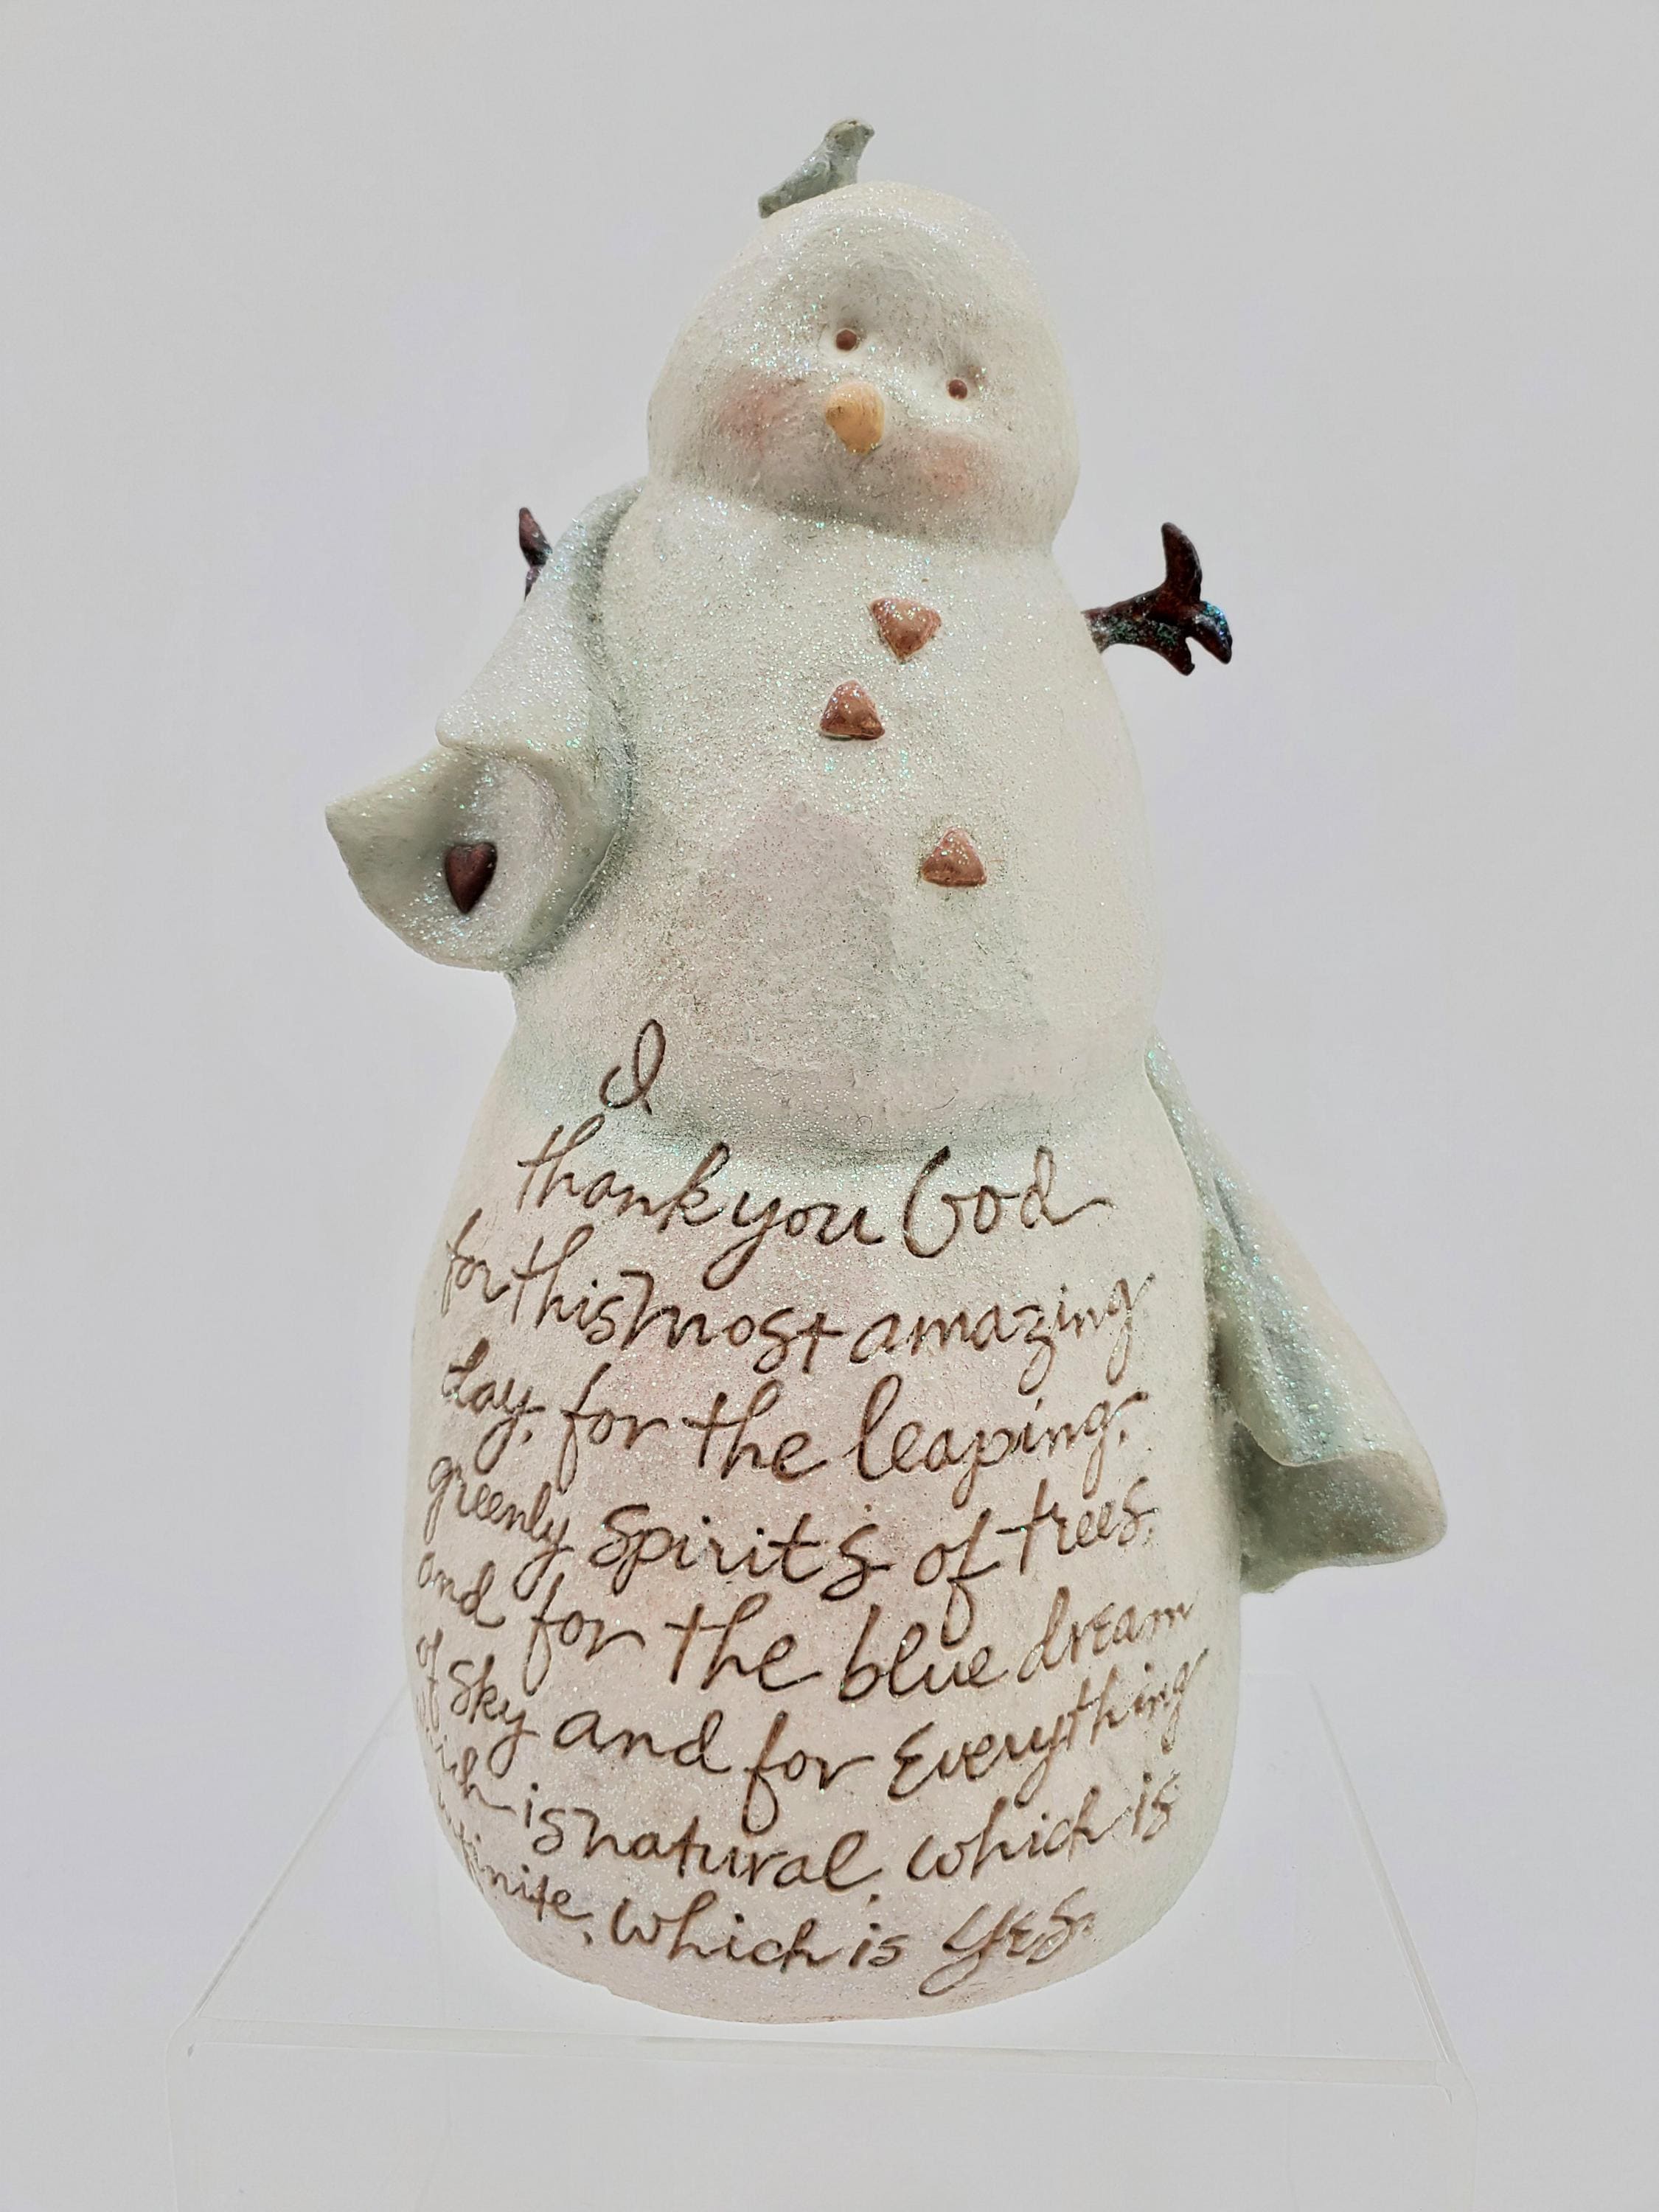 I
thank you God
for this most amazing
day, for the leaping,
greenly spirits of trees,
and for the blue dream
of sky and for Everything
which is natural, which is
infinite, which is YES.